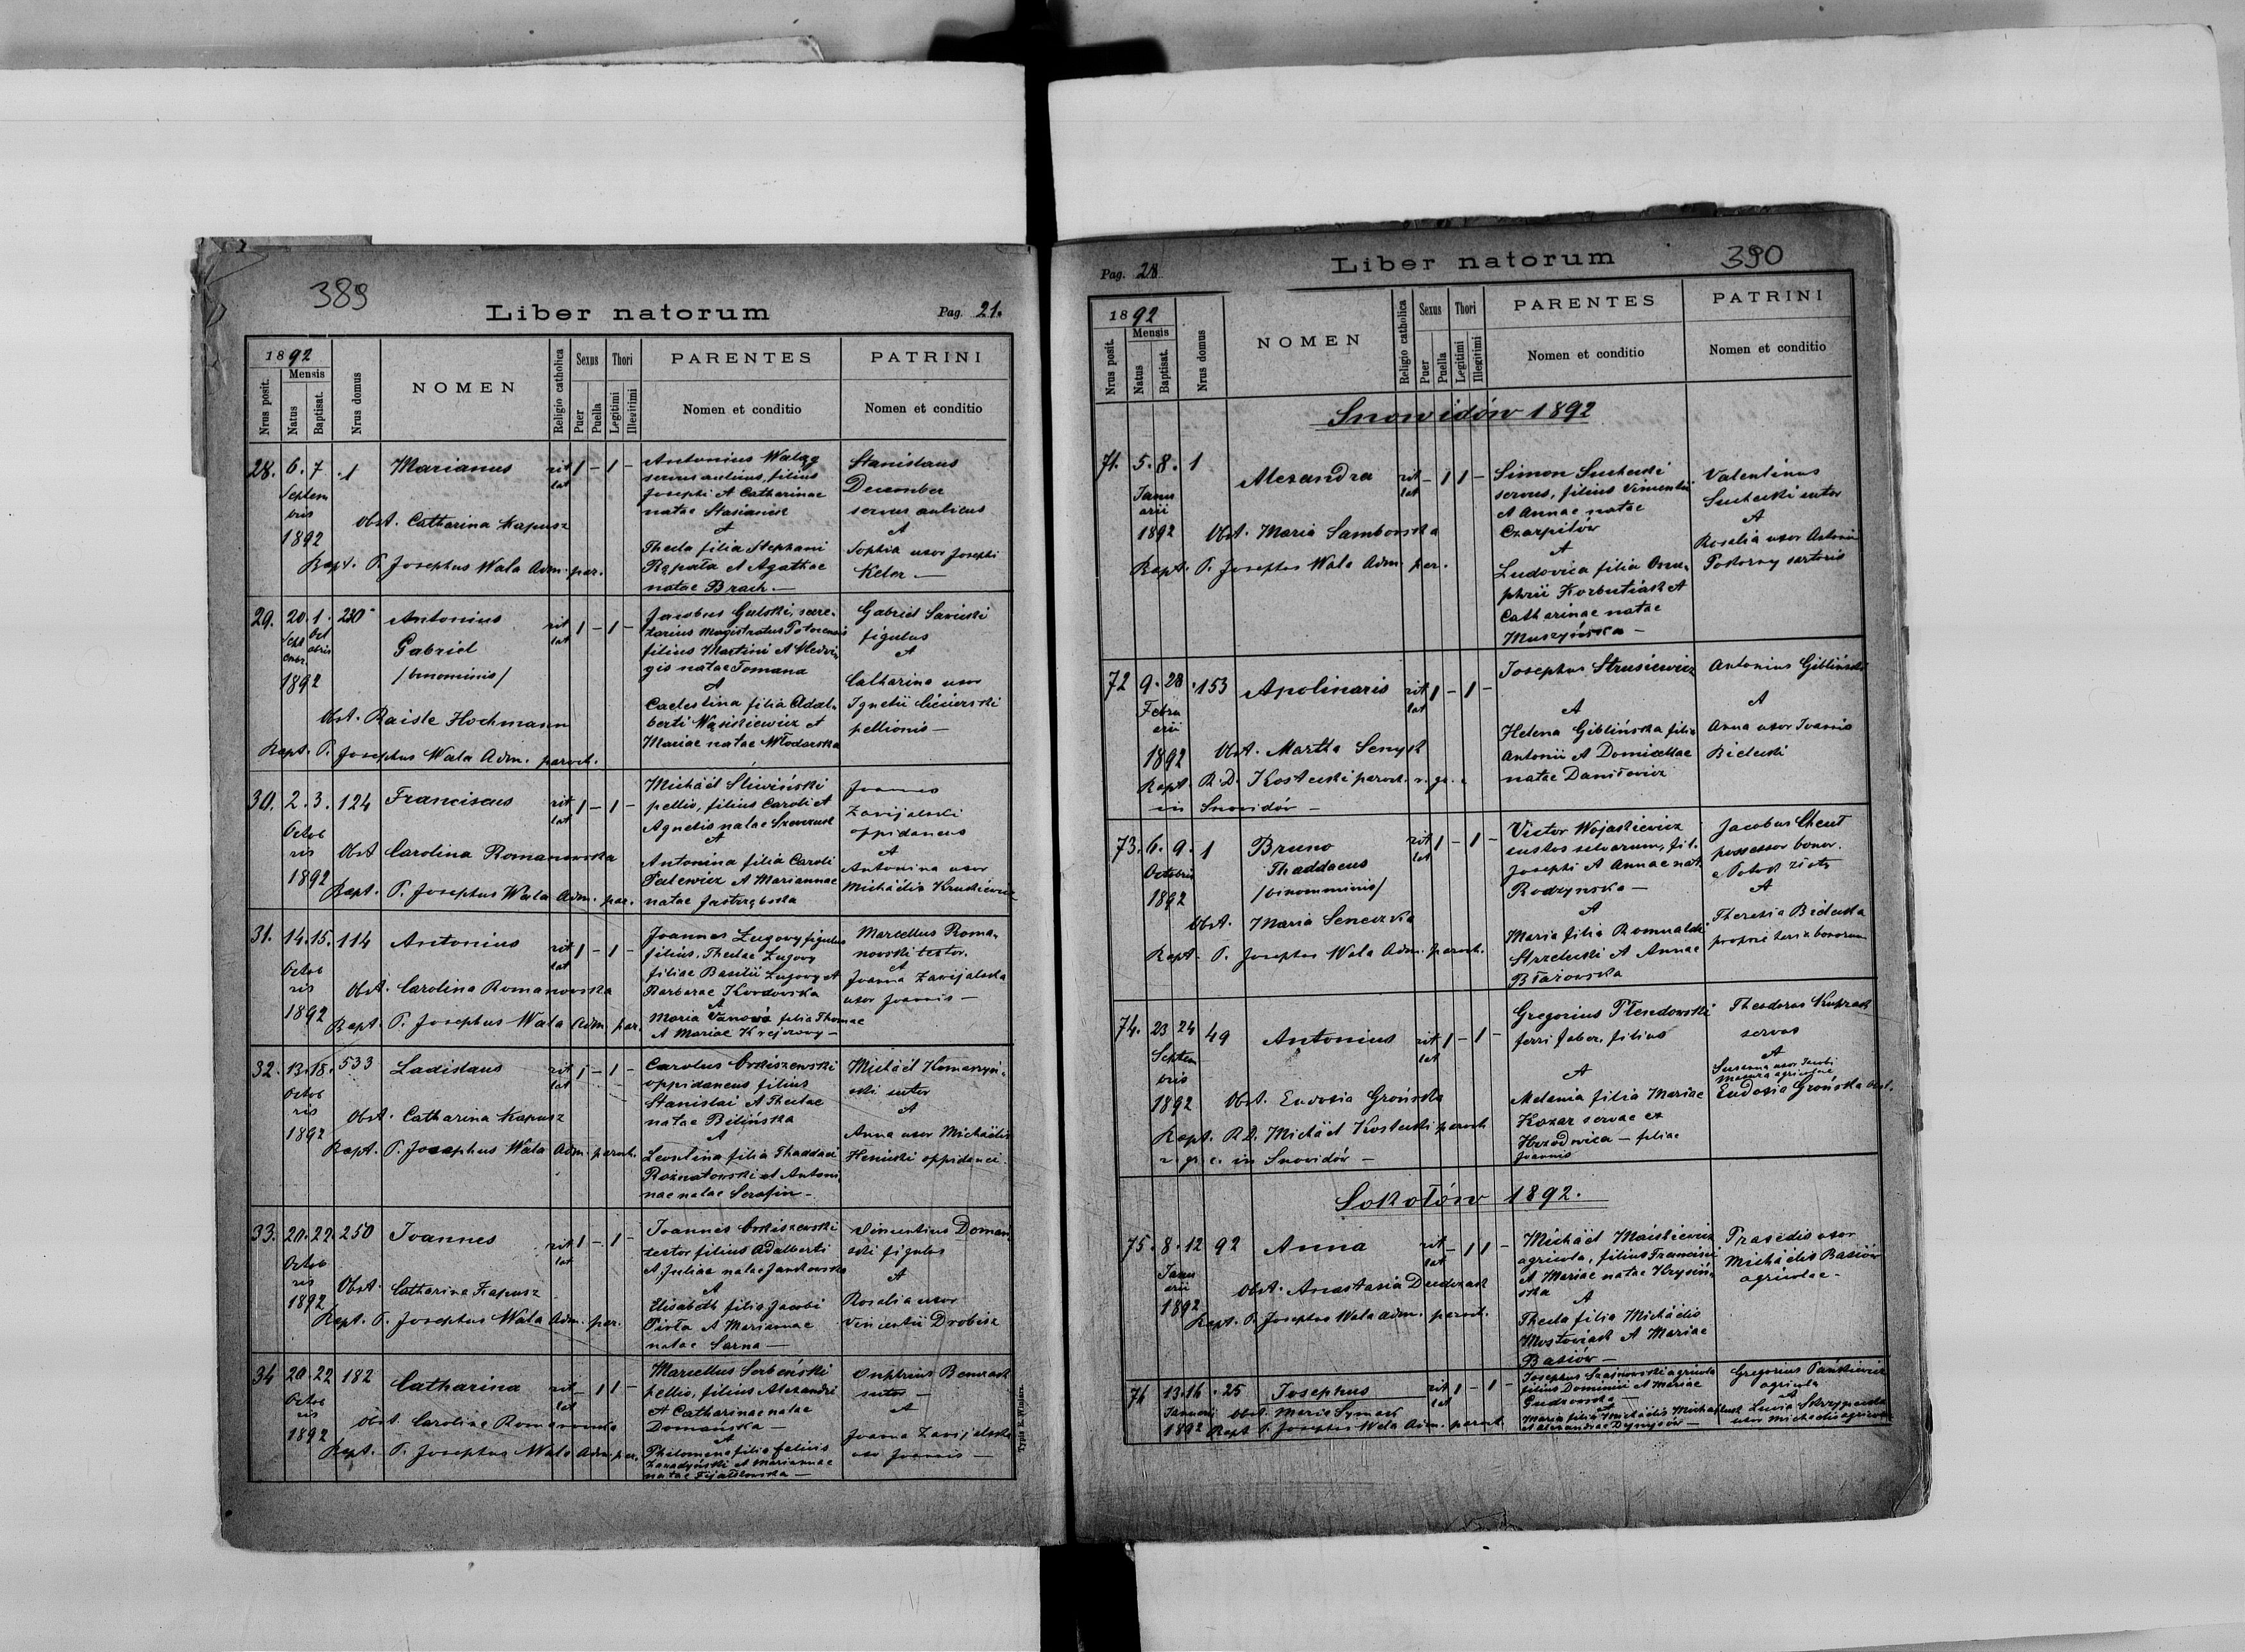 389
Liber natorum
Pag. 21.
1892
Nrus posit.
Mensis
Natus
Baptisat.
Nrus domus
NOMEN
Religio catholica
Sexus
Puer
Puella
Thori
Legitimi
Illegitimi
PARENTES
Nomen et conditio
PATRINI
Nomen et conditio
28. 6. 7. 1 Marianus rit lat 1 – 1 –
Septem
bris
1892
Obst. Catharina Kapusz
Bapt. P. Josephus Wala Adm. par.
Antonius
servus aulicus, filius
Josephi et Catharinae
natae
et
Thecla filia Stephani
Rąpała et Agathae
natae Brach. —
Stanislaus
December
servus aulicus
et
Sophia uxor Josephi
29. 20. 1. 230 Antonius rit lat 1 – 1 –
Gabriel
/binominis/
1892
Obst. Raisle Hochmann
Bapt. P. Josephus Wala Adm. paroch.
Jacobus Gulski, secre-
tarius Magistratus
filius Martini et Hedvi
gis natae Tomana
et
Caelestina filia Adal-
berti et
Mariae natae Włodarska
Gabriel
figulus
et
Catharina uxor
Ignatii
pellionis —
30. 2. 3. 124 Franciscus rit lat 1 – 1 –
Octob
ris
1892
Obst Carolina Romanowska
Bapt. P. Josephus Wala Adm. par.
Michaël Śliwiński
pellio, filius Caroli et
Agnetis natae
et
Antonina filia Caroli
et Mariannae
natae Jastrzębska
Joannes
Zawijalski
oppidaneus
et
Antonina uxor
Michaëlis
31. 14. 15. 114 Antonius rit lat 1 – 1 –
Octob
ris
1892
Obst. Carolina Romanowska
Bapt. P. Josephus Wala Adm. par.
Joannes Ługowy figulus
filius Theclae Ługowy
filiae Basilii Ługowy et
Barbarae
et
Maria filia Thomae
et Mariae
Marcellus Roma-
nowski textor.
et
Joanna Zawijalska
uxor Joannis —
32. 13. 18. 533 Ladislaus rit lat 1 – 1 –
Octob
ris
1892
Obst. Catharina Kapusz
Bapt. P. Josephus Wala Adm. paroch.
Carolus
oppidaneus filius
Stanislai et Theclae
natae Bilińska
et
Leontina filia Thaddaei
et Antoni
nae natae Serafin —
Michaël
ski sutor
et
Anna uxor Michaëlis
oppidanei.
33. 20. 22. 250 Joannes rit lat 1 – 1 –
Octob
ris
1892
Obst. Catharina Kapusz
Bapt. P. Josephus Wala Adm. par.
Joannes
textor filius Adalberti
et Juliae natae Jankowska
et
Elisabeth filia Jacobi
et Mariannae
natae Sarna —
Vincentius Domań
ski figulus
et
Rosalia uxor
Vincentii Drobisz
34 20. 22 182 Catharina rit lat – 1 1 –
Octob
ris
1892
Obst. Carolina Romanowska
Bapt. P. Josephus Wala Adm. par.
Marcellus Serbeński
pellio, filius Alexandri
et Catharinae natae
Domańska —
et
Philomena filia Felicis
Zawadyński et Mariannae
natae Fijałkowska —
Onphrius
sutor —
et
Joanna Zawijalska
uxor Joannis —
Typis E. Winiarz.
Pag. 28.
Liber natorum
390
1892
Nrus posit.
Mensis
Natus
Baptisat.
Nrus domus
NOMEN
Religio catholica
Sexus
Puer
Puella
Thori
Legitimi
Illegitimi
PARENTES
Nomen et conditio
PATRINI
Nomen et conditio
Snowidów 1892
71. 5. 8. 1 Alexandra rit lat – 1 1 –
Janu
arii
1892
Obst. Maria Sambowska
Bapt. P. Josephus Wala Adm. par.
Simon Suchecki
servus, filius Vincentii
et Annae natae
et
Ludovica filia Onu-
phrii et
Catharinae natae
Muszyńska —
Valentinus
Suchecki sutor
et
Rosalia uxor Antonii
Pokorny sartoris
72 9. 28. 153 Apolinaris rit lat 1 – 1 –
Febru
arii
1892
Obst. Martha
Bapt R. D. Kostecki paroch. r. gr. c.
in Snowidów —
Josephus Strusiewicz
et
Helena Giblińska filia
Antonii et Domicellae
natae Daniłowicz
Antonius Gibliński
et
Anna uxor Joannis
Bielecki
73. 6. 9. 1 Bruno rit lat 1 – 1 –
Thaddaeus
/binominis/
Octobris
1892
Obst. Maria
Bapt. P. Josephus Wala Adm. paroch.
Victor
custos silvarum, fil.
Josephi et Annae nat.
et
Maria filia Romualdi
Strzelecki et Annae
Błażowska
Jacobus
possessor bonor.
et
Theresia Bielecka
bonorum
74. 23 24 49 Antonius rit lat 1 – 1 –
Septem
bris
1892
Obst. Eudoxia Grońska
Bapt. R. D. Michaël Kostecki paroch
r. gr. c. in Snowidów —
Gregorius
ferri faber, filius
et
Melania filia Mariae
Kozar servae ex
— filiae
Joannis
Theodorus
servus
et
Susanna uxor Jacobi
agricolae
Eudoxia Grońska obst.
Sokołów 1892.
75. 8. 12 92 Anna rit lat – 1 1 –
Janu
arii
1892
Obst. Anastasia
Bapt. P. Josephus Wala adm. paroch.
Michaël
agricola, filius Francisci
et Mariae natae
ska
et
Thecla filia Michaëlis
et Mariae
Basiów —
Praxedis uxor
Michaëlis Basiów
agricolae —
13. 16. 25 Josephus rit lat 1 – 1 –
Januarii
1892
Obst. Maria
Bapt P. Josephus Wala Adm. paroch.
Josephus agricola
filius Dominici et Mariae
et
Maria filia Michaëlis
Alexandrae
Gregorius
agricola
et
uxor Michaëlis agricolae